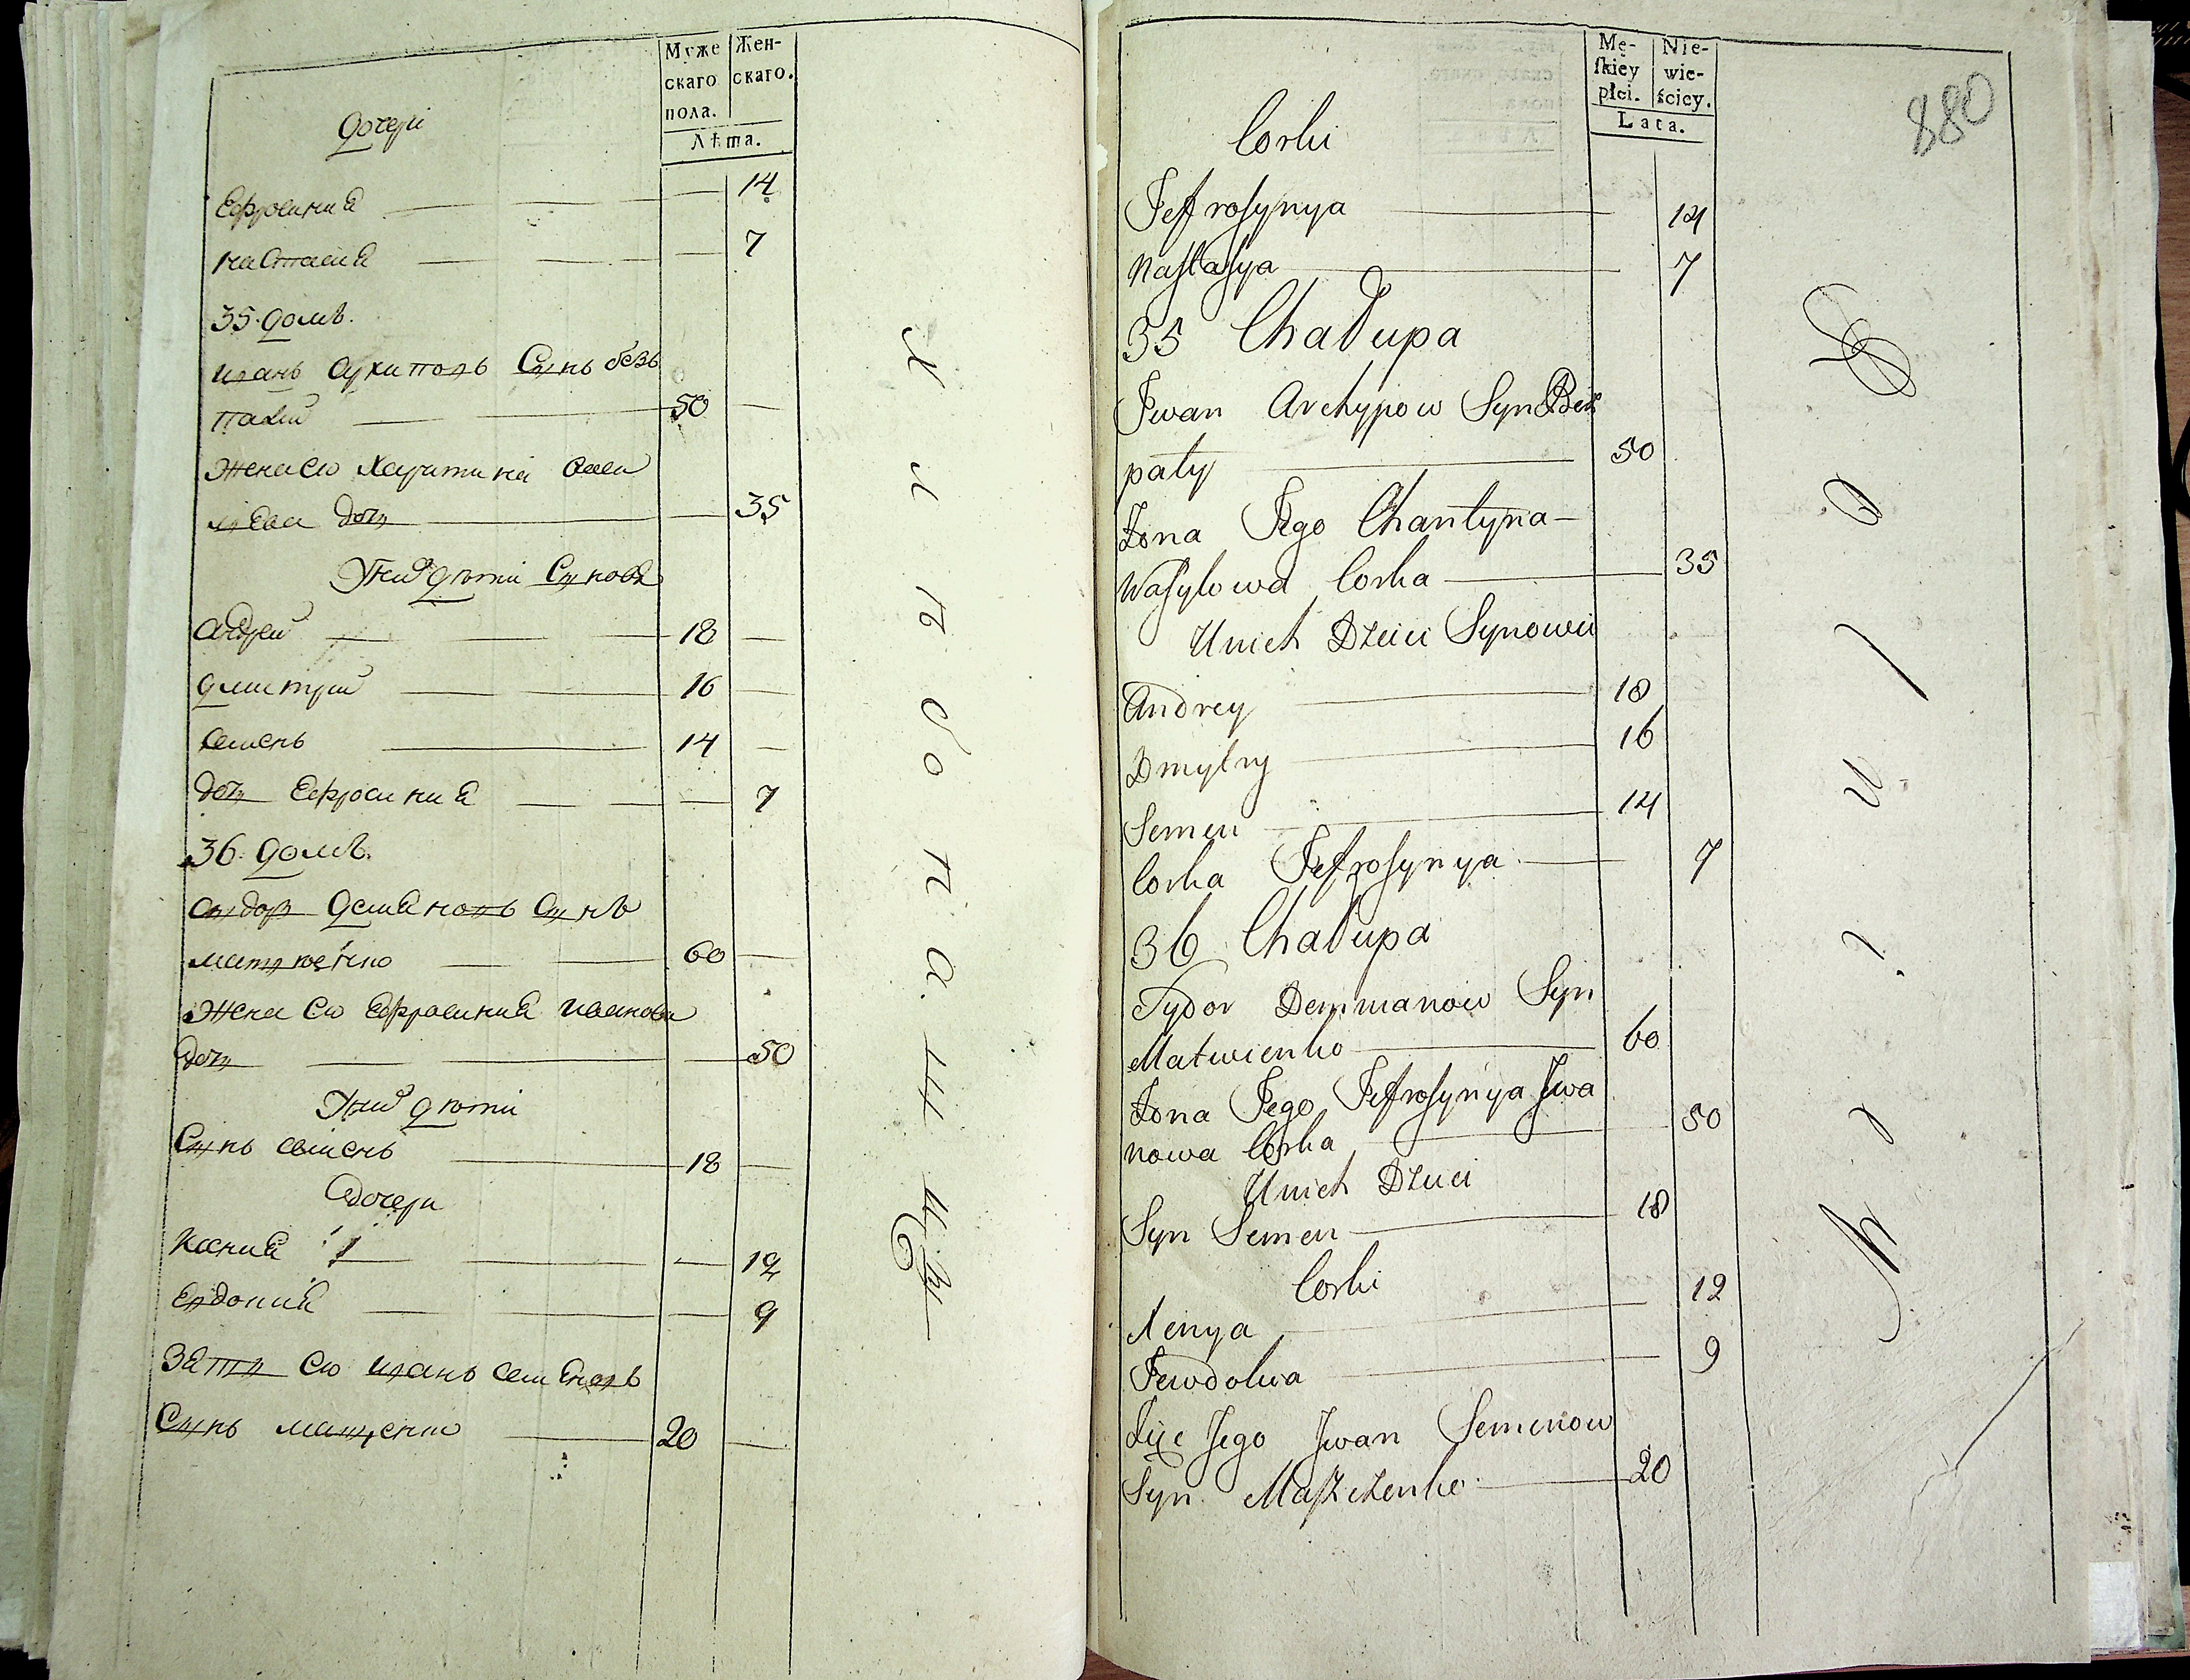 Муже
скаго
пола.
Жен-
скаго.
Лѣта.
Дочери
Ефросиния 14
Настасия 7
35. домъ.
Иванъ Архиповъ Сынъ безъ
палій 50
Жена Ево Харитина Васи
лѣва дочь 35
У них дѣти Синовя
Андрей 18
Дмитрий 16
Семенъ 14
дочь Ефросиния 7
36. домъ.
Демяновъ Сынъ
Матвѣенко 60
Жена Ево Ефросиния Иванова
дочь 50
У них дѣти
Сынъ Семенъ 18
Дочери
Ксения 12
Евдокия 9
Зять Ево Иванъ Семеновъ
Сынъ Мащенко 20
Mę-
ſkiey
płci.
Nie-
wie-
ściey.
Lata.
880
Corki
Jefroſynya 14
Naſtaſya 7
35 Chałupa
Jwan Archypow Syn Bez
pały 50
Żona Jego Charityna
Waſylowa Corka 35
Unich Dzieci Synowie
Andrey 18
Dmytry 16
Semen 14
Corka Jefroſynya 7
36 Chałupa
Sydor Demianow Syn
Matwienko 60
Żona Jego Jefroſynya Jwa
nowa Corka 50
Unich Dzieci
Syn Semen 18
Corki
Xenya 12
Jewdokia 9
Zięć Jego Jwan Semenow
Syn Maſzczenko 20